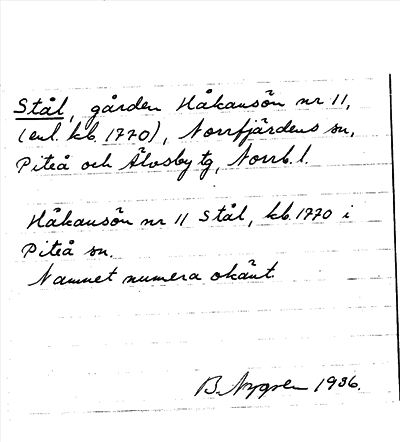 Stål, gården Håkansön nr 11,
(enl. kb. 1770), Norrfjärdens sn,
Piteå och Älvsby tg, Norrb. l.
Håkansön nr 11 Stål, kb. 1770 i
Piteå sn.
Namnet numera okänt.
B. Nygren 1936.